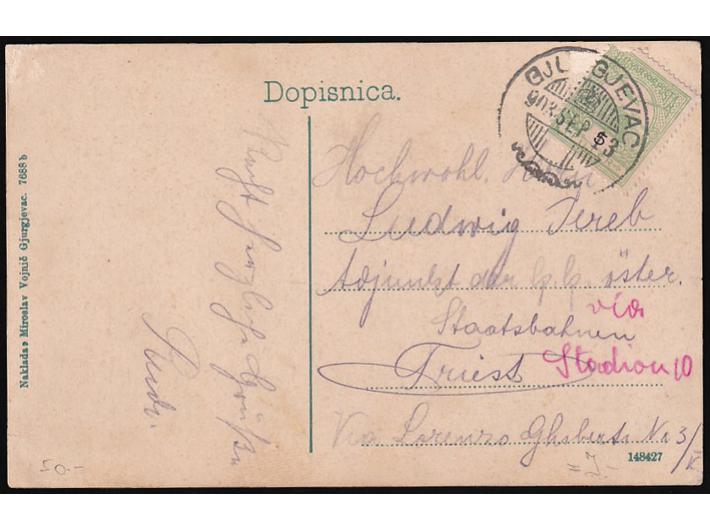 Dopisnica.
GJURGJEVAC
908 SEP 13
Hochwohl. Herrn
Ludwig Jereb
Adjunkt der k.k. öster.
Staatsbahnen
Triest
via
Stadion 10
Via Lorenzo Ghiberti No 3/
Recht herzliche Grüße
Rudi.
Naklada Miroslav Vojnić Gjurgjevac. 7688 b
50.-
148427